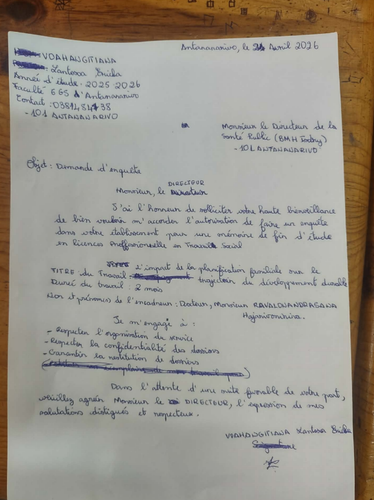 Antananarivo, le 21 Avril 2026
VOAHANGITIANA
Lantosoa Ericka
Année d'étude - 2025 2026
Faculté EGS d'Antananarivo
Contact : 0381484738
- 101 ANTANANARIVO
Monsieur le Directeur de la
Santé Public (BMH Isotry)
- 101 ANTANANARIVO
Objet : Demande d'enquête
DIRECTEUR
Monsieur, le
J'ai l'honneur de solliciter votre haute bienveillance
de bien vouloir m'accorder l'autorisation de faire un enquête
dans votre établissement pour une mémoire de fin d'étude
en licence Professionnelle en Travail Social
TITRE du Travail L'impact de la planification familiale sur le
trajectoire du développement durable
Durée du travail : 2 mois
Nom et prénoms de l'encadreur : Docteur, Monsieur
Je m'engage à :
- Respecter l'organisation du service
- Respecter la confidentialité des dossiers
- Garantir la restitution de dossiers
Dans l'attente d'une suite favorable de votre part,
veuillez agréer Monsieur le DIRECTEUR, l'expression de mes
salutations distigués et respectueux.
VOAHANGITIANA Lantosoa Ericka